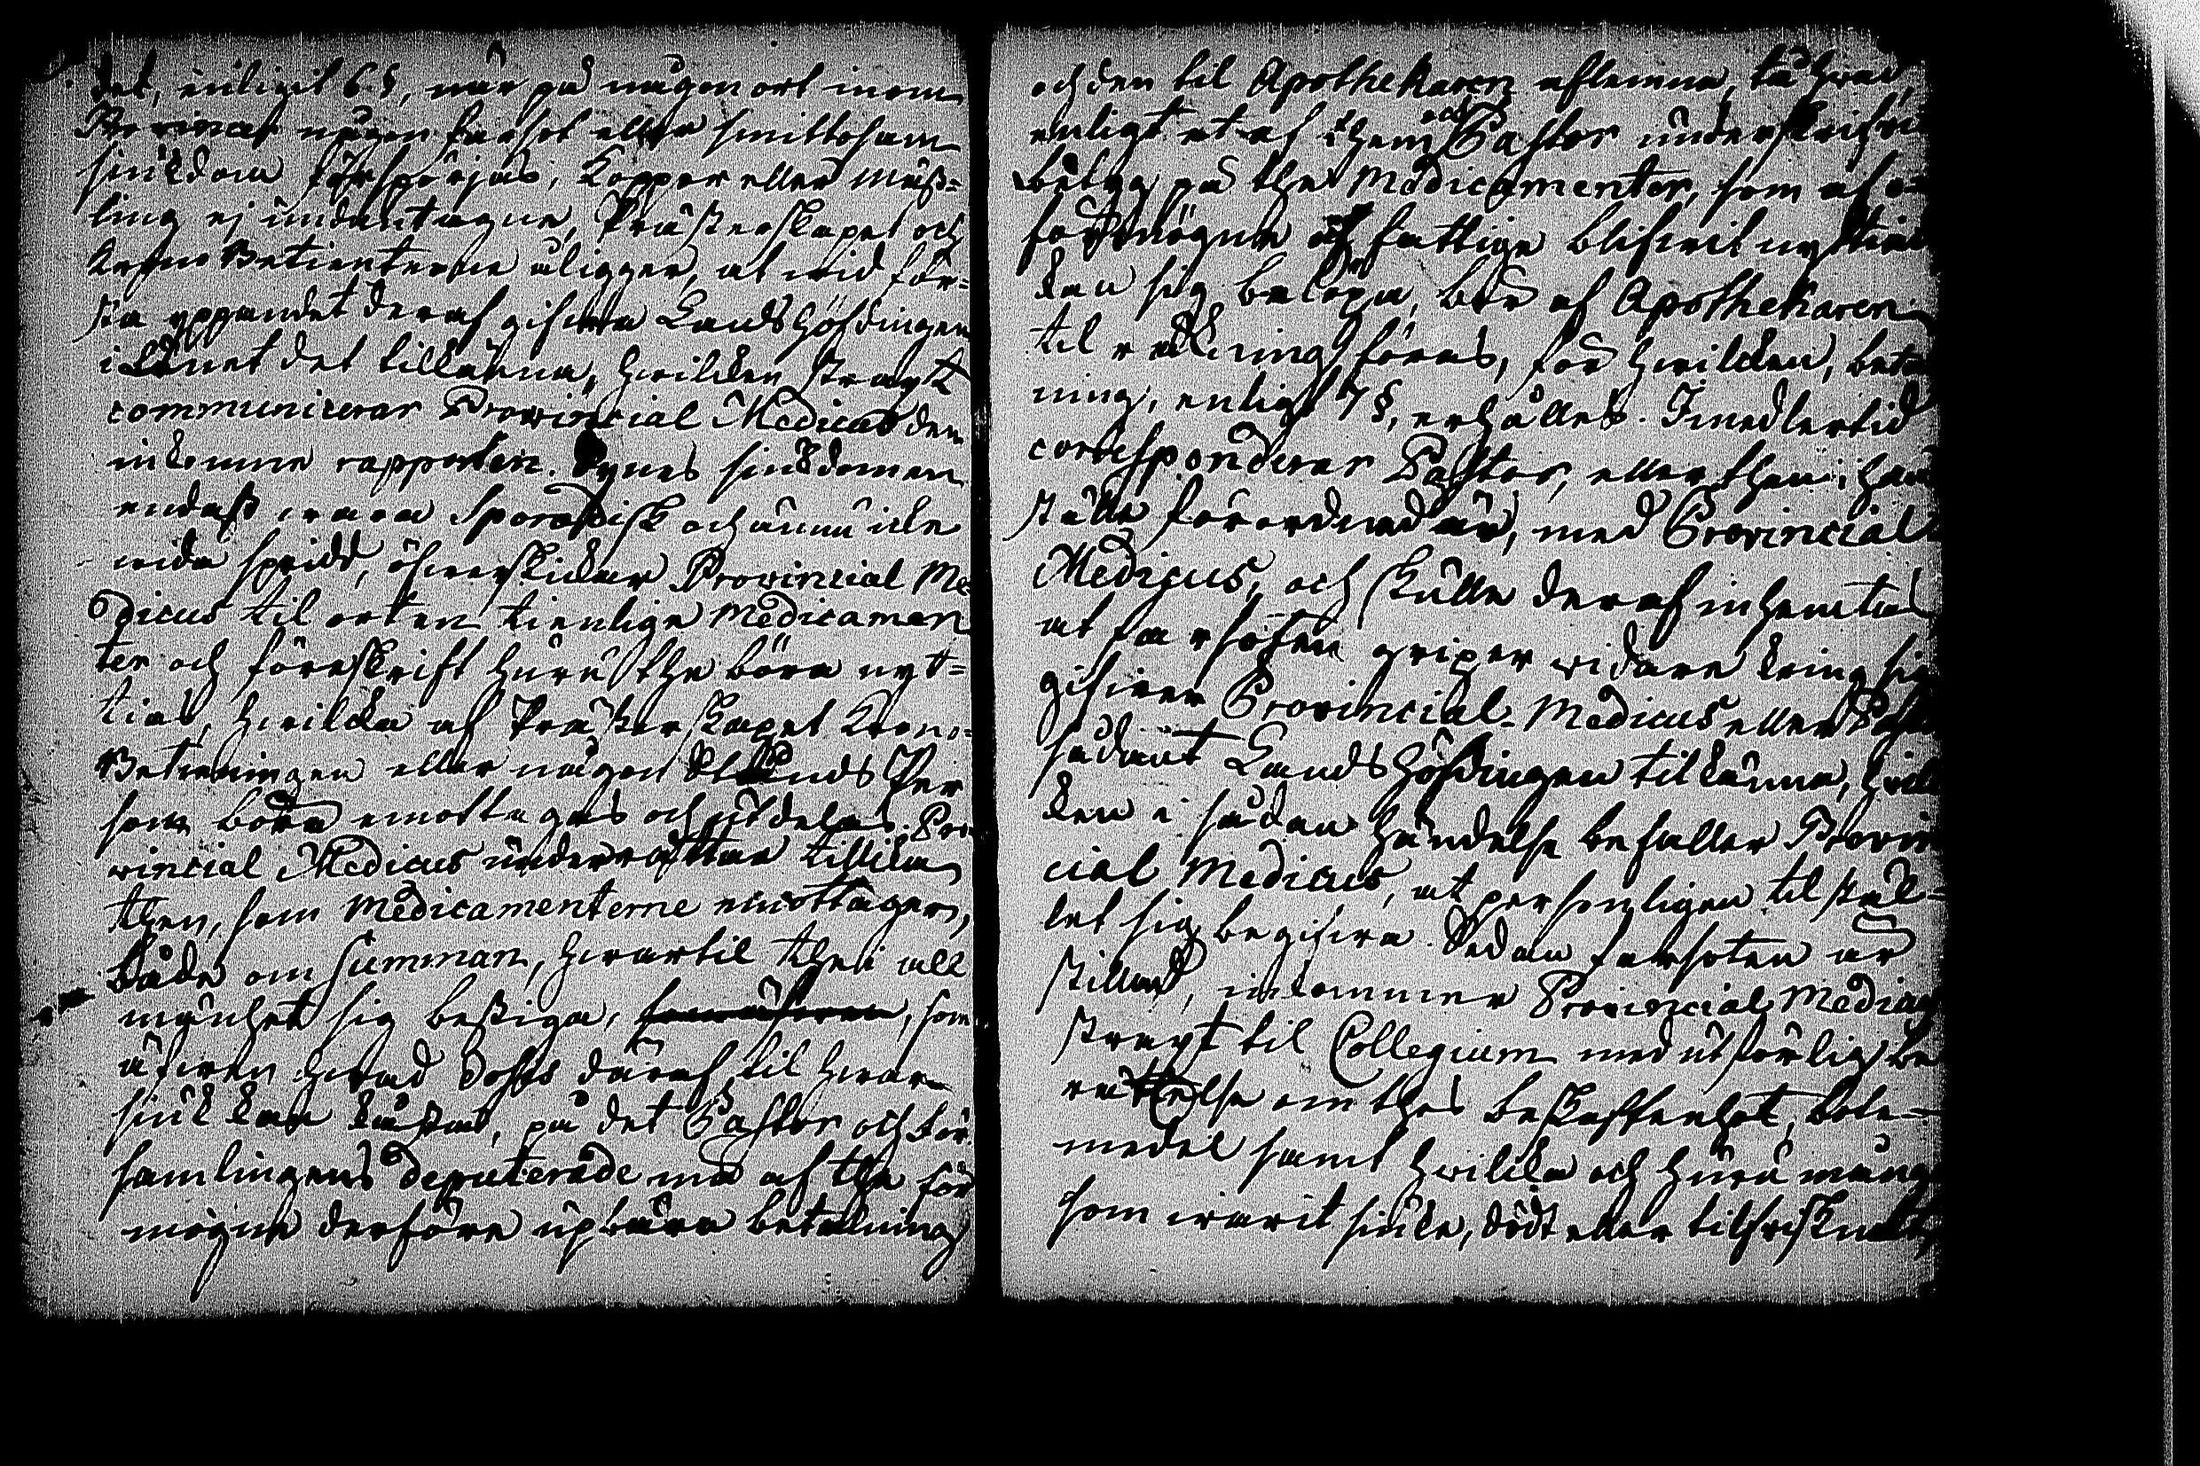 det, enligit 6 §, när på någon ort inom
Provincen någon farsot eller smittosam
siukdom förspörjas, Koppor eller Mäß-
ling ej undantagne, Prästerskapet och
Krono Betienterne åligger, at wid för-
sta yppandet deraf gifwa Landshöfdingen
i Länet det tillkänna, hwilken straxt
communicerar Provincial Medicus den
inkomne rapporten. Synes siukdomen
endast wara Sporadisk och ännu icke
wida spridd, öfwerskickar Provincial Me-
dicus til orten tienlige Medicamen
ter och föreskrift huru the böra nyt-
tias, hwilka af Prästerskapet Krono-
Betieningen eller någon Stånds Per
son böra emottagas och utdelas. Pro-
vincial Medicus underrättar tillika
then, som Medicamenterne emottager,
både om Summan, hwartil the i all
mänhet sig bestiga, som
äfwen hwad Dosis däraf til hwar
siuk kan kåstas, på det Pastor och För
samlingens Deputerade må af the för
mögne derföre upbära betalning
och den til Apothekaren aflemna, tå hwad,
enligt et af them och Pastor underskrifwit
bewis på the Medicamenter, som af o-
förmögne och fattige blifwit nyttiade
kan sig belöpa, bör af Apothekaren
til räkning föras, för hwilken, betal
ning, enligt 7 §, erhålles. Imedlertid
corresponderar Pastor, eller then i hans
ställe förordnad är, med Provincial
Medicus, och skulle deraf inhemtas
at farsoten griper widare kring sig
gifwer Provincial-Medicus eller Pastor
sådant Landshöfdingen tilkänna, hwil
ken i sådan händelse befaller Provin
cial Medicus, at personligen til stäl-
let sig begifwa. Sedan farsoten är
stillad, inkommer Provincial Medicus
straxt til Collegium med utförlig be
rättelse om thes beskaffenhet, bote-
medel samt hwilka och huru månge
som warit siuke, dödt eller tilfrisknat